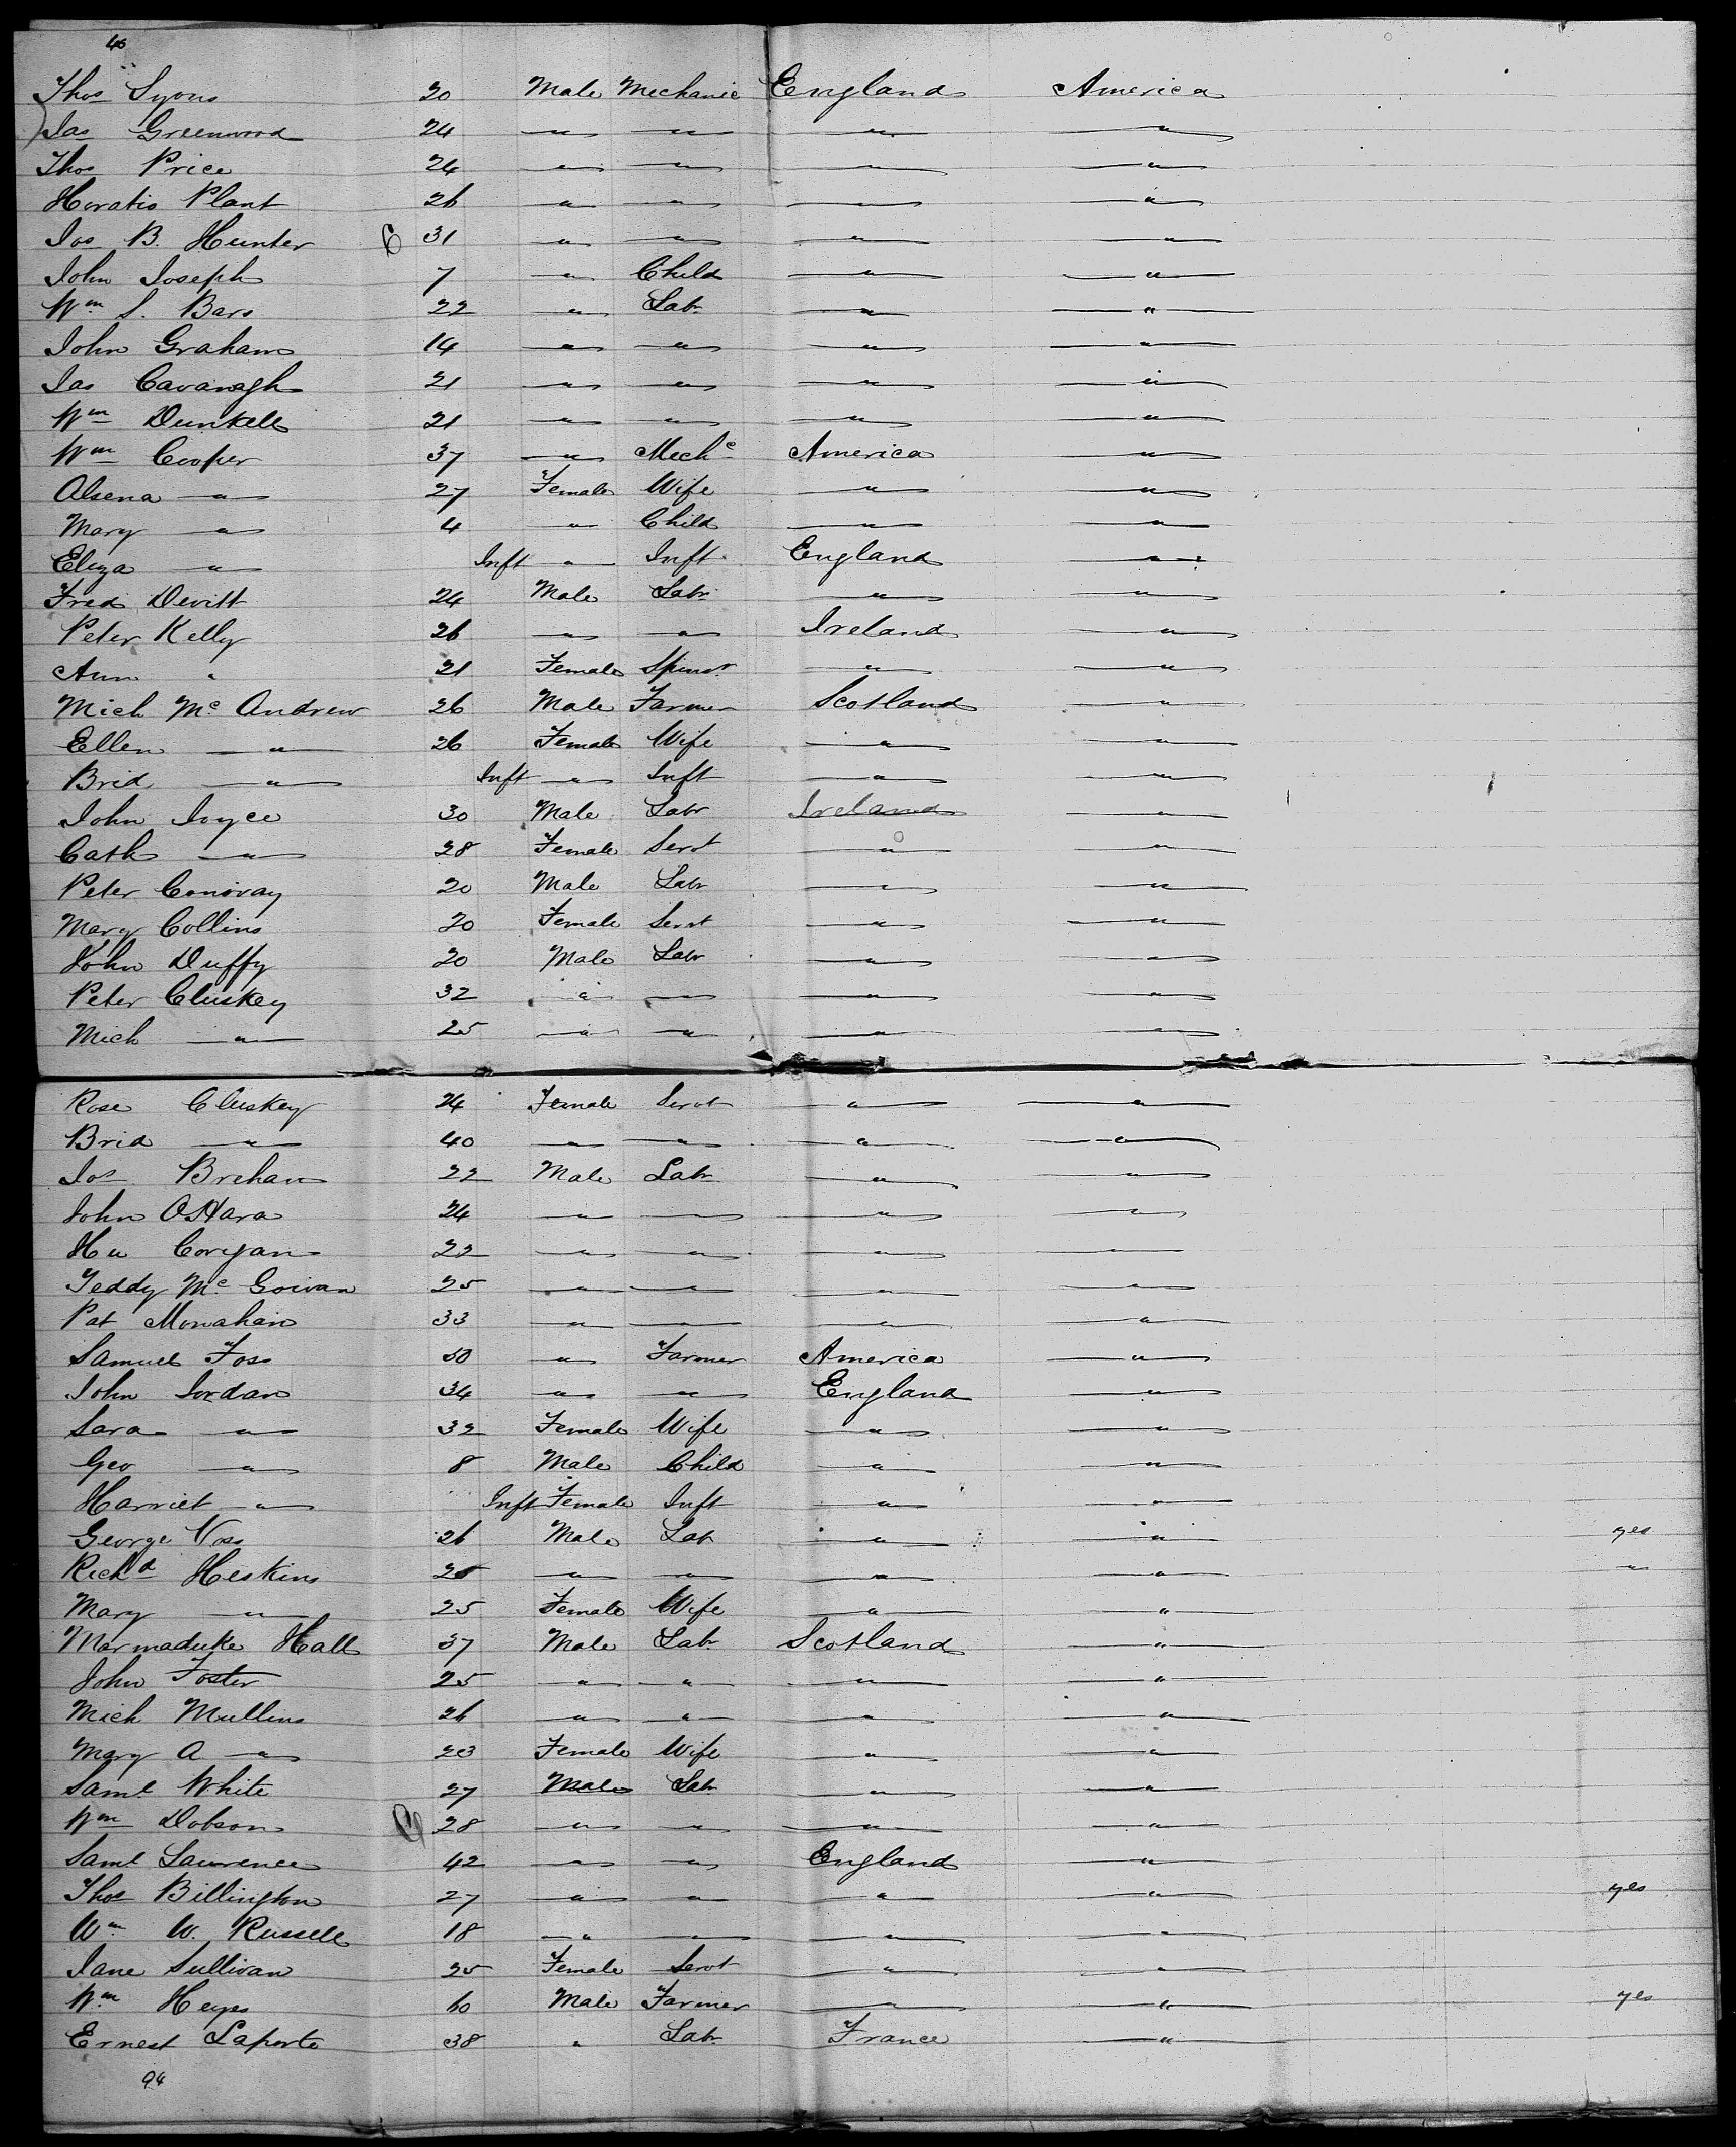 46
Thos Lyons 20 Male Mechanic England America
Jas Greenwood 24 " " " "
Thos Price 24 " " " "
Horatio Plant 26 " " " "
Jos B. Hunter 31 " " " "
John Joseph 7 " Child " "
Wm S. Bars 22 " Labr " "
John Graham 14 " " " "
Jas Cavanagh 21 " " " "
Wm Dunkell 21 " " " "
Wm Cooper 37 " Mechc America "
Alsena " 27 Female Wife " "
Mary " 4 " Child " "
Eliza " Inft " Inft England "
Fred Devitt 24 Male Labr " "
Peter Kelly 26 " " Ireland "
Ann " 21 Female Spinsr " "
Mich Mc Andrew 26 Male Farmer Scotland "
Ellen " 26 Female Wife " "
Brid " Inft " Inft " "
John Joyce 30 Male Labr Ireland "
Cath " 28 Female Servt " "
Peter Conway 20 Male Labr " "
Mary Collins 20 Female Servt " "
John Duffy 20 Male Labr " "
Peter Cluskey 32 " " " "
Mich " 25 " " " "
Rose Cluskey 24 Female Servt " "
Brid " 40 " " " "
Jos Brehan 22 Male Labr " "
John O'Hara 24 " " " "
Hu Corigan 22 " " "
Teddy Mc Gowan 25 " " " "
Pat Monahan 33 " " "
Samuel Foss 50 " Farmer America "
John Jordan 34 " " England "
Sara " 32 Female Wife " "
Geo " 8 Male Child " "
Harriet " Inft Female Inft " "
George Voss 26 Male Lab " " yes
Richd Heskins 25 " " " " "
Mary " 25 Female Wife " "
Marmaduke Hall 37 Male Labr Scotland "
John Foster 25 " " " "
Mich Mullins 26 " " " "
Mary A " 23 Female Wife " "
Saml White 27 Male Labr " "
Wm Dobson 28 " " " "
Saml Lawrence 42 " " England "
Thos Billington 27 " " " " yes
Wm W. Russell 18 " " " "
Jane Sullivan 25 Female Servt " "
Wm Heyes 60 Male Farmer " " yes
Ernest Laporte 38 " Labr France "
94